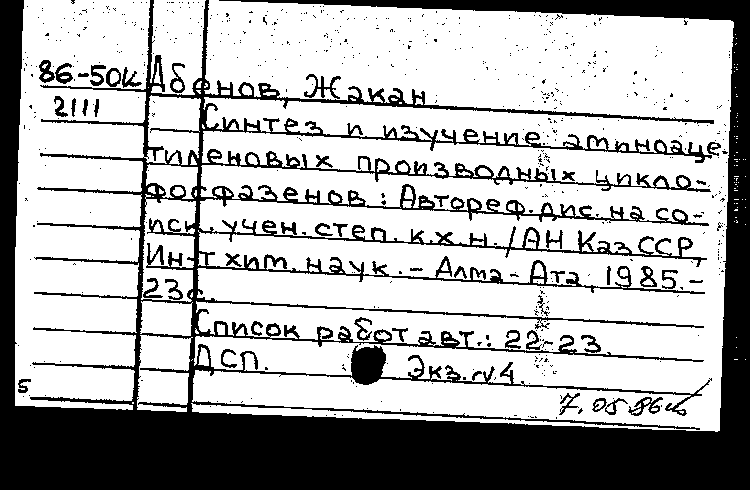 86-50к Абенов, Жакан.
2111 Синтез и изучение аминоаце-
тиленовых производных цикло-
фосфазенов: Автореф. дис. на со-
иск. учен. степ. к.х.н. / АН КазССР,
Ин-т хим. наук. - Алма-Ата, 1985.-
23с.
Список работ авт.: 22-23.
ДСП. Экз. N 4.
5
7.05.86